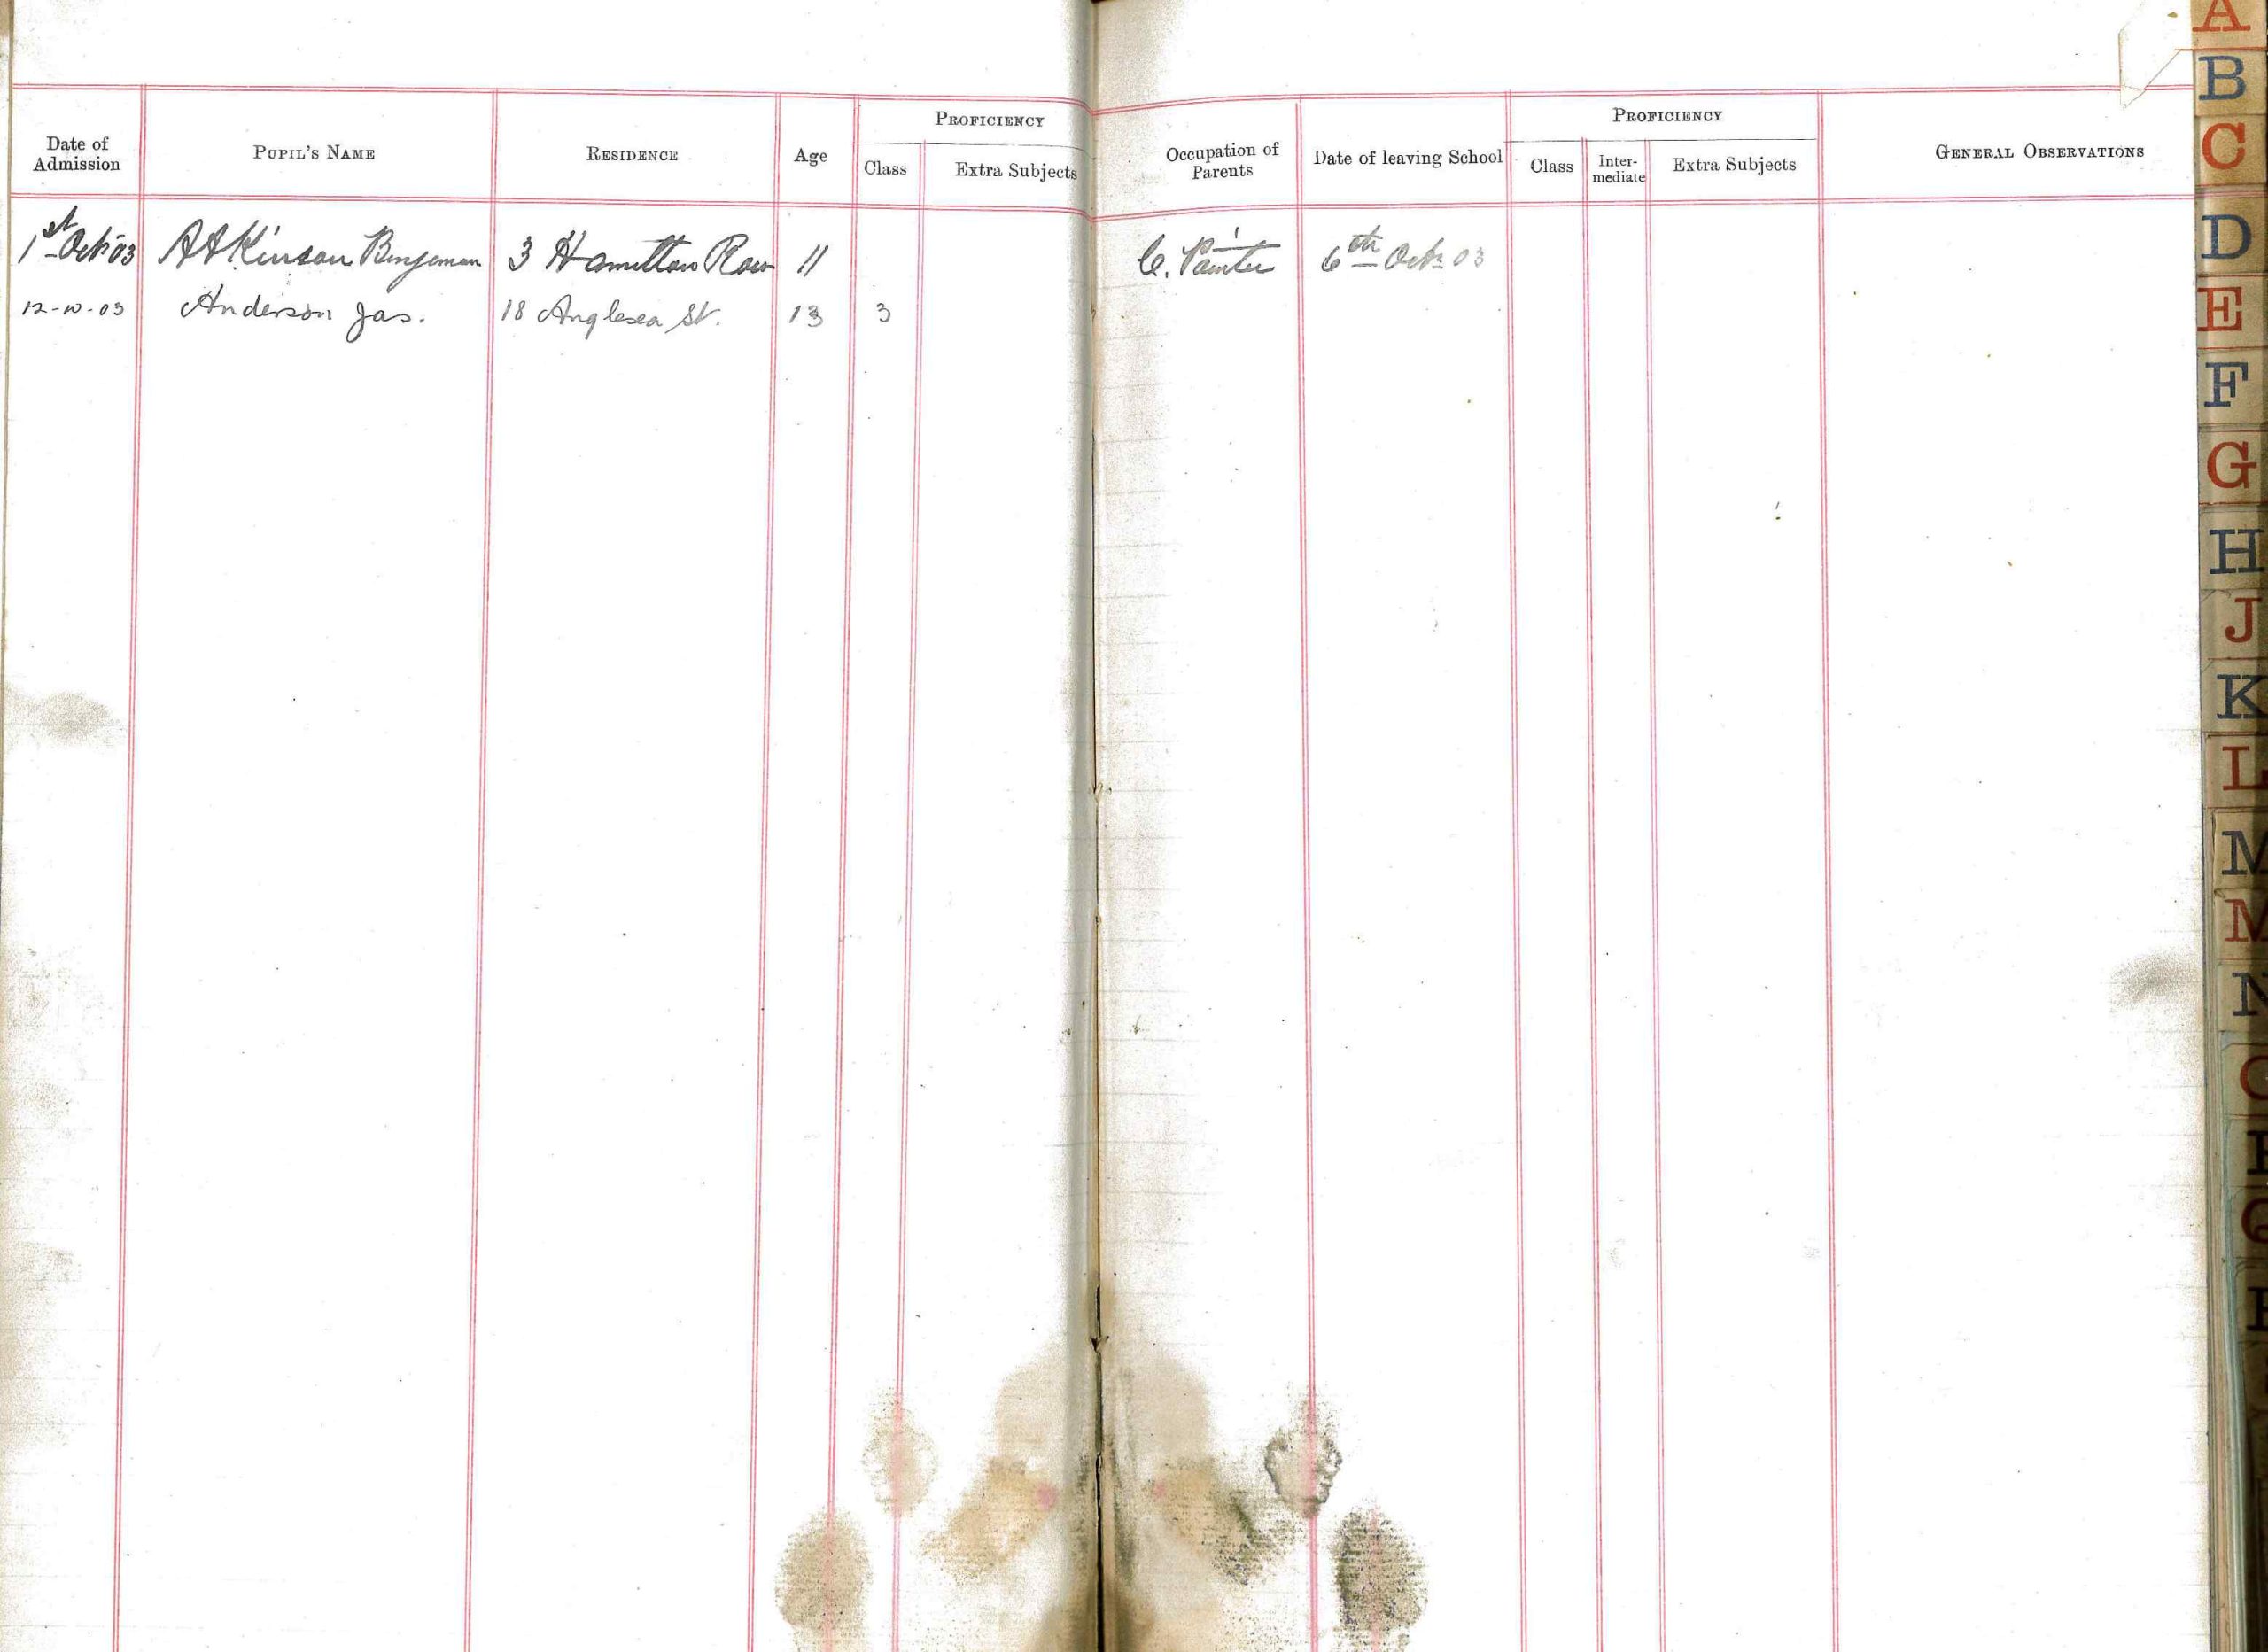 PROFICIENCY PROFICIENCY
Date of Admission PUPIL'S NAME RESIDENCE Age Class Extra Subjects Occupation of Parents Date of leaving School Class Inter-mediate Extra Subjects GENERAL OBSERVATIONS
1st Oct 03 Atkinson Benjeman 3 Hamilton Row 11 C. Painter 6th Oct 03
12-10-03 Anderson Jas. 18 Anglesea St. 13 3
A
B
C
D
E
F
G
H
J
K
L
M
M
N